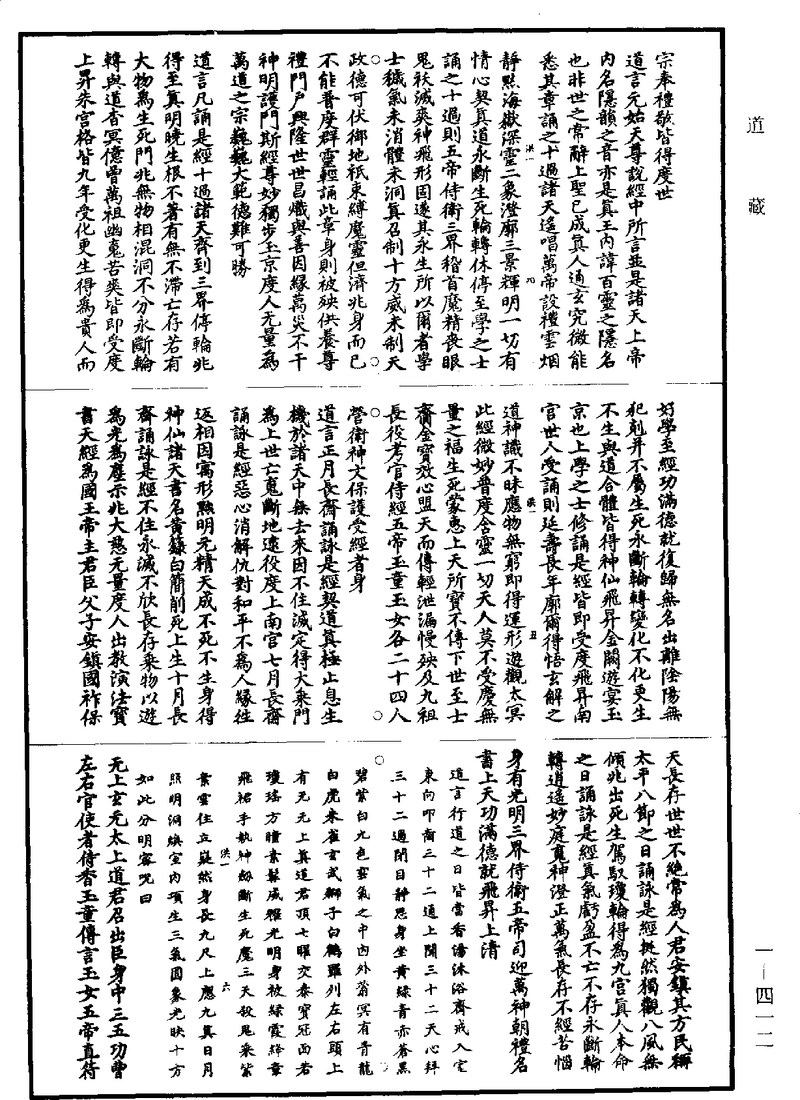 道藏
宗奉禮敬皆得度世
道言元始天尊說經中所言並是諸天上帝
內名隱韻之音亦是真王內諱百靈之隱名
也非世之常辭上聖已成真人通玄究微能
悉其章誦之十過諸天遙唱萬帝設禮雲烟
靜默海嶽深靈二象澄廓三景輝明一切有
情心契真道永斷生死輪轉休停至學之士
誦之十過則五帝侍衛三界稽首魔精喪眼
鬼祅滅爽神飛形固遂其永生所以爾者學
士穢氣未消體未洞真召制十方威未制天
政德可伏御地祇束縛魔靈但濟兆身而已
不能普度群靈輕誦此章身則被殃供養尊
禮門戶興隆世世昌熾與善因緣萬災不干
神明護門斯經尊妙獨步玉京度人无量為
萬道之宗巍巍大範德難可勝
道言凡誦是經十過諸天齊到三界停輪兆
得至真明曉生根不著有無不滯亡存若有
大物為生死門兆無物相混洞不分永斷輪
轉與道杳冥億曾萬祖幽鬼苦爽皆即受度
上昇朱宮格皆九年受化更生得為貴人而
好學至經功滿德就復歸無名出離陰陽無
犯剋并不屬生死永斷輪轉變化不化更生
不生與道合體皆得神仙飛昇金闕遊宴玉
京也上學之士修誦是經皆即受度飛昇南
宮世人受誦則延壽長年廓爾得悟玄解之
道神識不昧應物無窮即得運形遊觀太冥
此經微妙普度含靈一切天人莫不受慶無
量之福生死蒙惠上天所寶不傳下世至士
齎金寶效心盟天而傳輕泄漏慢殃及九祖
長役考官侍經五帝玉童玉女各二十四人
營衛神文保護受經者身
道言正月長齋誦詠是經契道真極止息生
機於諸天中無去來因不住滅定得大乘門
為上世亡鬼斷地逮役度上南宮七月長齋
誦詠是經惡心消解仇對和平不為人緣往
返相因寓形黙明元精天成不死不生身得
神仙諸天書名黃籙白簡削死上生十月長
齋誦詠是經不住永滅不欣長存乘物以遊
為光為塵示兆大慈无量度人出教演法寶
書天經為國王帝主君臣父子安鎮國祚保
天長存世世不絕常為人君安鎮其方民稱
太平八節之日誦詠是經挺然獨觀八風無
傾兆出死生駕馭瓊輪得為九宮真人本命
之日誦詠是經真氣虧盈不亡不存永斷輪
轉逍遥妙庭鬼神澄正萬氣長存不經苦惱
身有光明三界侍衛五帝司迎萬神朝禮名
書上天功滿德就飛昇上清
道言行道之日皆當香湯沐浴齋戒入室
東向叩齒三十二通上聞三十二天心拜
三十二過閉目靜思身坐黃綠青赤蒼黑
碧紫白九色靈氣之中內外翁冥有青龍
白虎朱雀玄武獅子白鶴羅列左右頭上
有无无上真道君項七曜交泰寶冠面若
瓊瑤方瞳素鬢威耀光明身被綠霞絳章
飛裙手執神劒斷生死魔三天殺鬼乘紫
素雲住立巍然身長九尺上應九真日月
照明洞煥室內項生三氣圓象光映十方
如此分明密呪曰
无上玄元太上道君召出臣身中三五功曹
左右官使者侍香玉童傳言玉女五帝直符
一－四一二